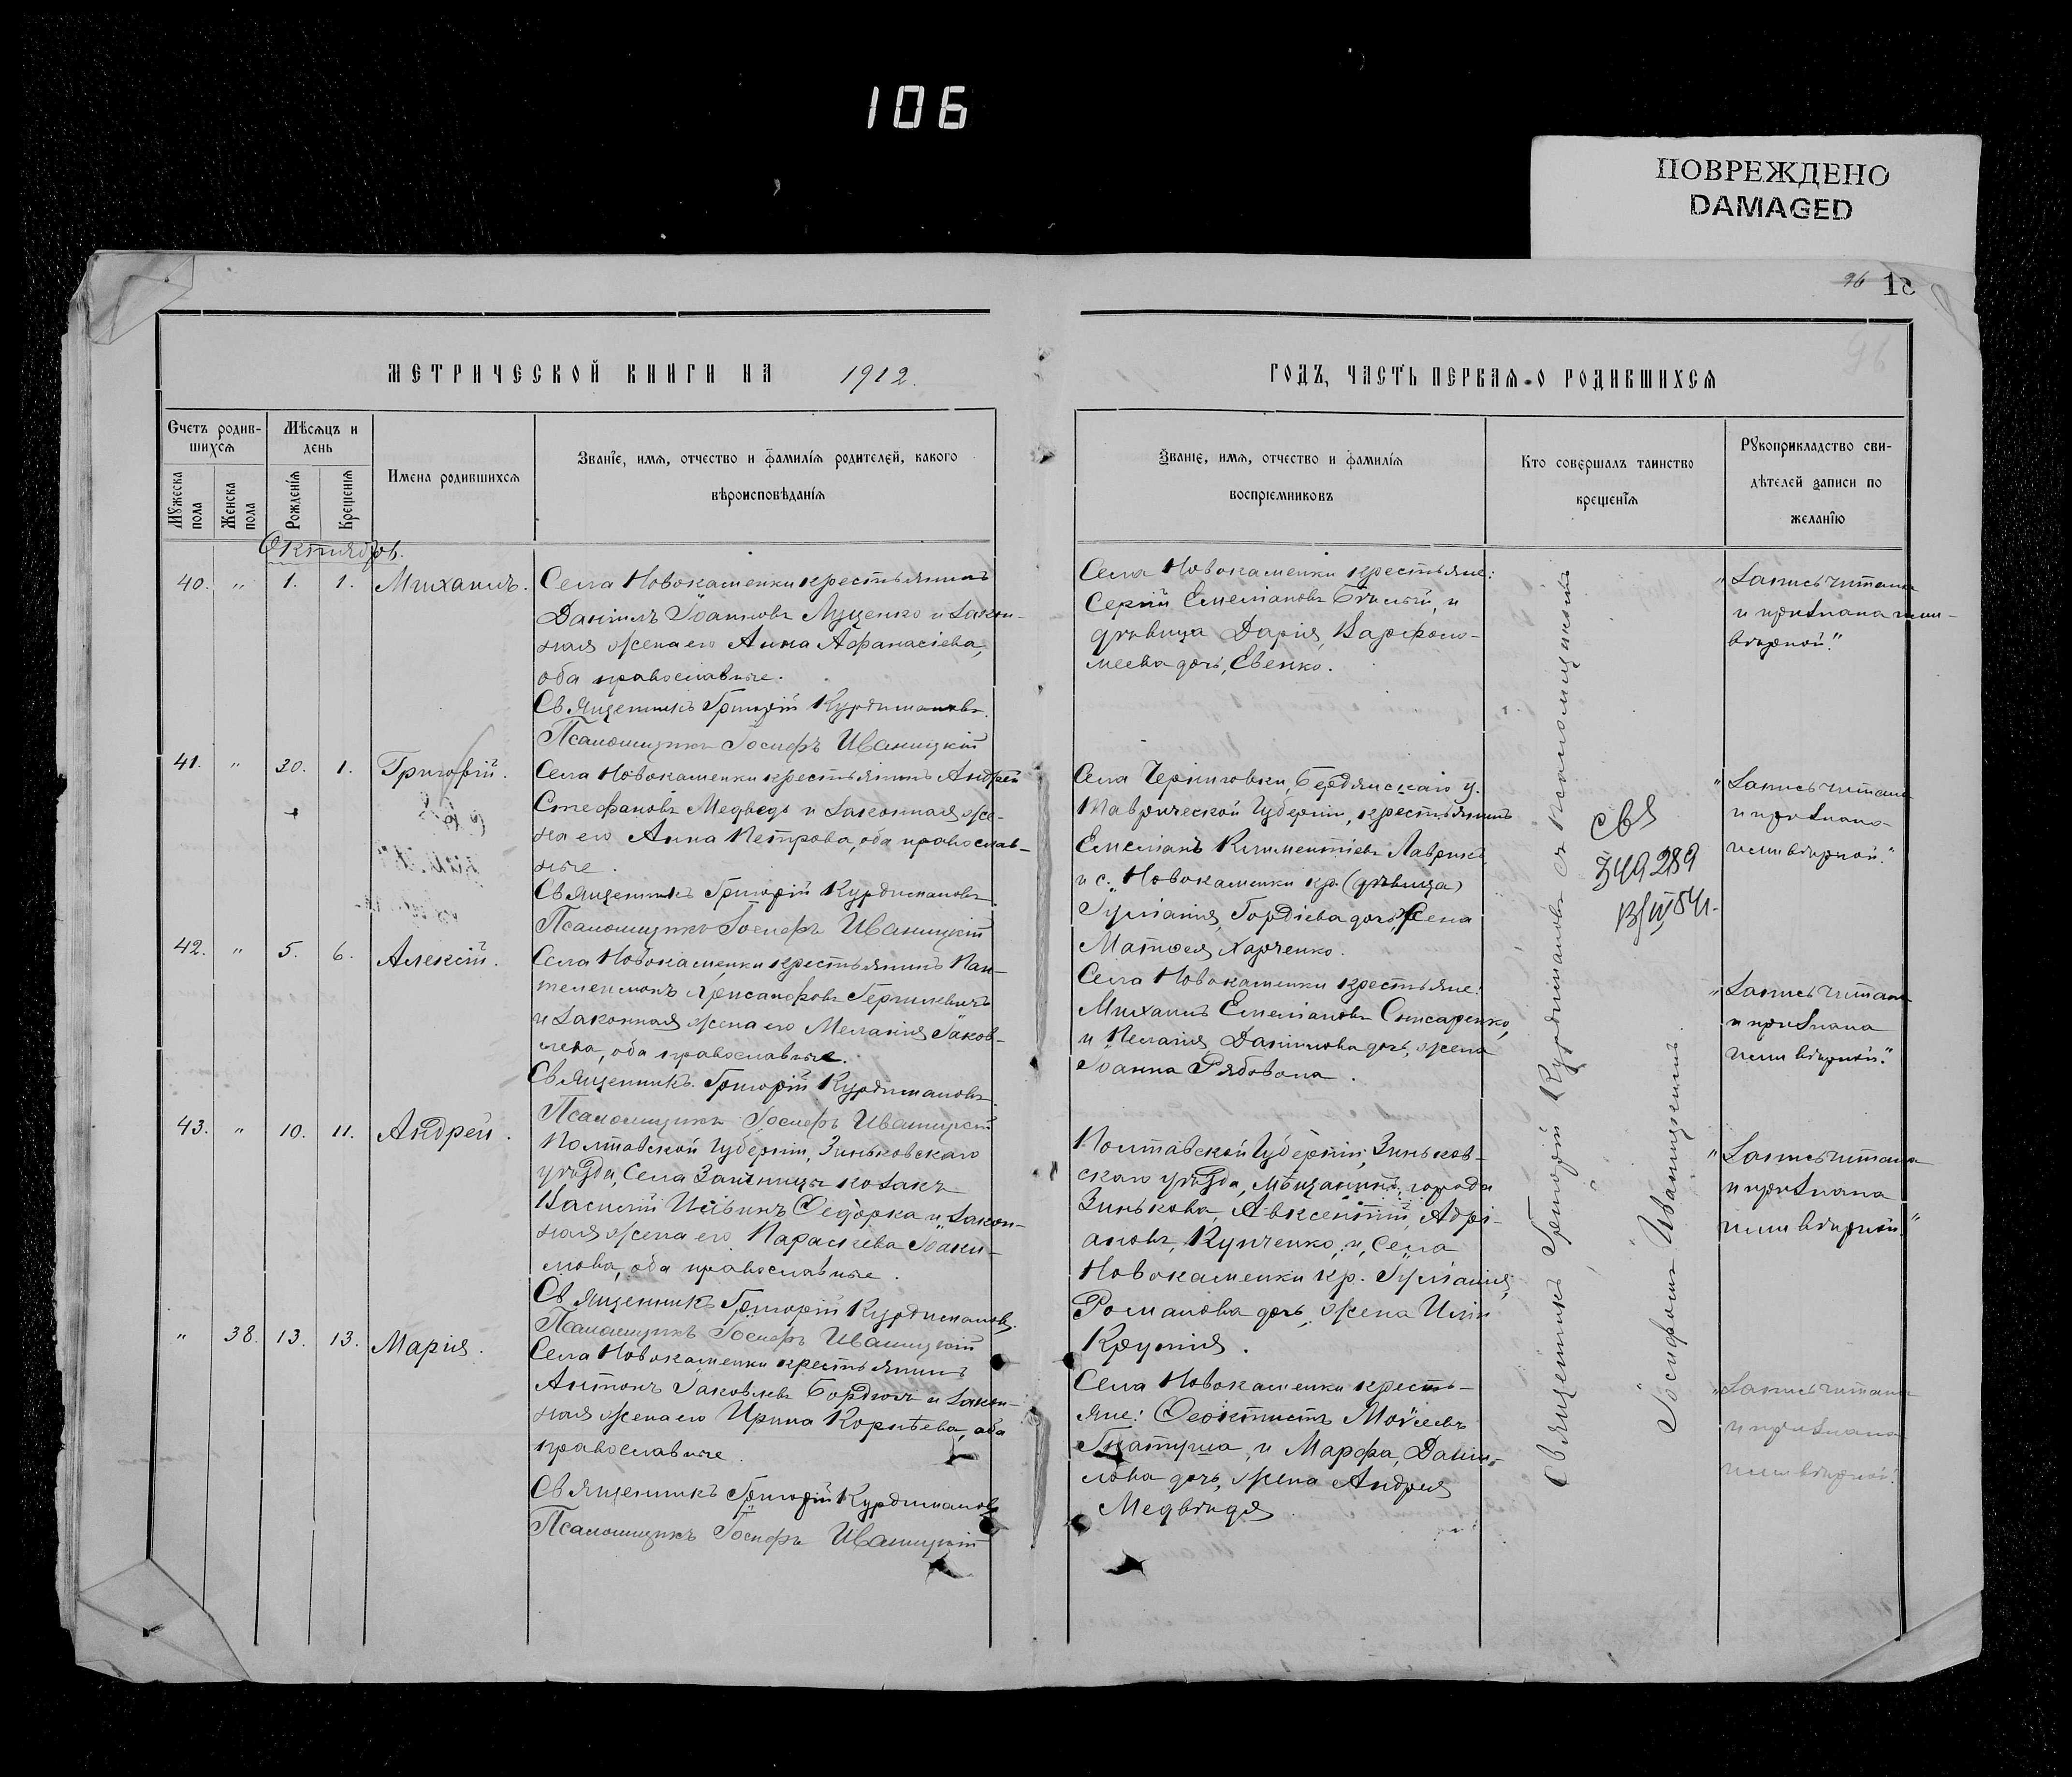 106
ПОВРЕЖДЕНО
DAMAGED
96
96
МЕТРИЧЕСКОЙ КНИГИ НА 1912.
ГОДЪ, ЧАСТЬ ПЕРВАЯ О РОДИВШИХСЯ
Счетъ родив-
шихся
Мужеска
пола
Женска
пола
Мѣсяцъ и
день
Рожденія
Крещенія
Имена родившихся
Званіе, имя, отчество и фамилія родителей, какого
вѣроисповѣданія
Званіе, имя, отчество и фамилія
воспріемниковъ
Кто совершалъ таинство
крещенія
Рукоприкладство сви-
дѣтелей записи по
желанію
Октябрь.
40. " 1. 1. Михаилъ.
Села Новокаменки крестьянинъ
Даніилъ Іоанновъ Луценко и закон-
ная жена его Анна Афанасіева,
оба православные.
Священникъ Григорій Курдимановъ.
Псаломщикъ Іосифъ Иваницкій
Села Новокаменки крестьяне:
Сергій Емеліановъ Бѣлый, и
дѣвица Дарія, Варфоло-
меева дочь, Евенко.
"Запись читана
и признана нами
вѣрной."
41. " 30. 1. Григорій.
Села Новокаменки крестьянинъ Андрей
Стефановъ Медведь и законная же-
на его Анна Петрова, оба православ-
ные.
Священникъ Григорій Курдимановъ
Псаломщикъ Іосифъ Иваницкій
Села Черниговки, Бердянскаго у.
Таврической губерніи, крестьянинъ
Емеліанъ Климентіевъ Лаврикъ
и с. Новокаменки кр. (дѣвица)
Іуліанія, Гордіева дочь, жена
Матфея Харченко.
свя
349289
"Запись читана
и признана
нами вѣрной."
42. " 5. 6. Алексій.
Села Новокаменки крестьянинъ Пан-
телеимонъ Хрисанфовъ Гермилевичъ
и законная жена его Меланія Іаков-
лева, оба православные.
Священникъ Григорій Курдимановъ.
Псаломщикъ Іосифъ Иваницкій
Села Новокаменки крестьяне:
Михаилъ Емеліановъ Снисаренко,
и Пелагія Даніилова дочь, жена
Іоанна Рябовола.
"Запись читана
и признана
нами вѣрной."
43. " 10. 11. Андрей.
Полтавской губерніи, Зиньковскаго
уѣзда, Села Заичинцы козакъ
Василій Іовинъ Федорка и закон-
ная жена его Параскева Іоаки-
мова, оба православные.
Священникъ Григорій Курдимановъ.
Псаломщикъ Іосифъ Иваницкій
Полтавской губерніи, Зиньков-
скаго уѣзда, мѣщанинъ города
Зинькова, Авксентій Адрі-
ановъ, Купченко, и, села
Новокаменки кр. Іуліанія
Романова дочь, жена Иліи
Крупія.
"Запись читана
и признана
нами вѣрной."
" 38. 13. 13. Марія.
Села Новокаменки крестьянинъ
Антонъ Іаковлевъ Бордюгъ и закон-
ная жена его Ирина Корнѣева, оба
православные.
Священникъ Григорій Курдимановъ
Псаломщикъ Іосифъ Иваницкій
Села Новокаменки кресть-
яне: Феоктистъ Моѵсеевъ
Гнатуша, и Марфа, Даніи-
лова дочь, жена Андрея
Медвѣдя.
"Запись читана
и признана
нами вѣрной."
Священникъ Григорій Курдимановъ съ псаломщикомъ
Іосифомъ Иваницкимъ.